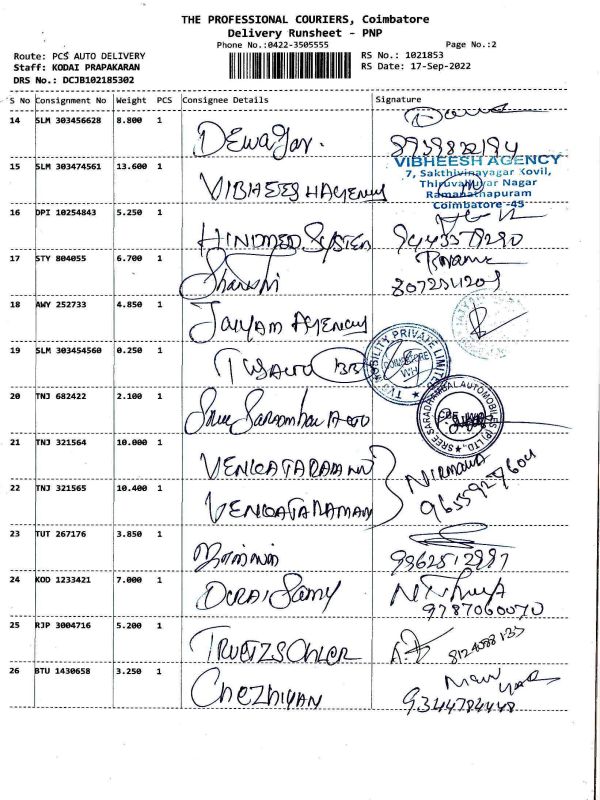 THE PROFESSIONAL COURIERS, Coimbatore
Delivery Runsheet - PNP
Phone No.:0422-3505555
Page No.:2
Route: PCS AUTO DELIVERY
RS No.: 1021853
Staff: KODAI PRAPAKARAN
RS Date: 17-Sep-2022
DRS No.: DCJB102185302
S No Consignment No Weight PCS Consignee Details Signature
14 SLM 303456628 8.800 1
15 SLM 303474561 13.600 1 VIBHEESH AGENCY
VIBHEESH AGENCY
7, Sakthivinayagar Kovil,
Thiruvalluvar Nagar
Ramanathapuram
Coimbatore -45
16 DPI 10254843 5.250 1 HINDMED SYSTEM
17 STY 804055 6.700 1
18 AWY 252733 4.850 1
19 SLM 303454560 0.250 1
TVS MOBILITY PRIVATE LIMITED
COIMBATORE
WH
20 TNJ 682422 2.100 1
SREE SARADHAMBAL AUTOMOBILES (P) LTD.,
CBE
21 TNJ 321564 10.000 1 VENKATARAMAN
NIRMALA
22 TNJ 321565 10.400 1 VENKATARAMAN
23 TUT 267176 3.850 1
24 KOD 1233421 7.000 1 DURAI Samy
9787060070
25 RJP 3004716 5.200 1 TRUETZSCHLER
26 BTU 1430658 3.250 1 CHEZHIYAN
9344784448